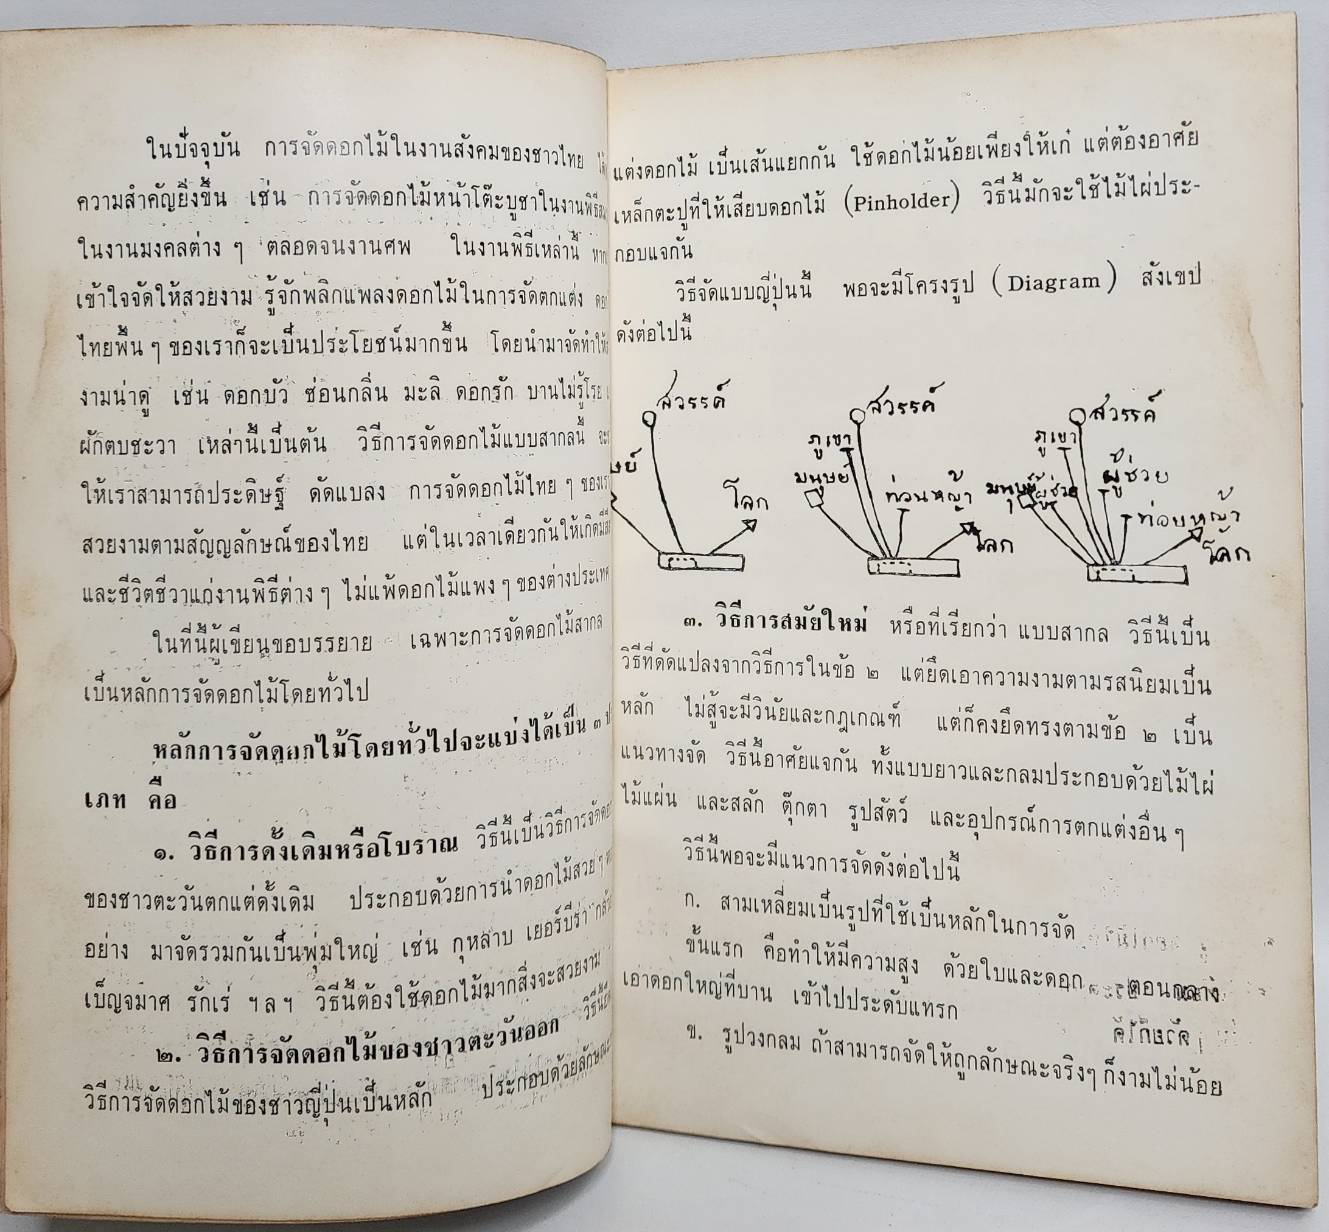 ในปัจจุบัน การจัดดอกไม้ในงานสังคมของชาวไทย
ความสำคัญยิ่งขึ้น เช่น การจัดดอกไม้หน้าโต๊ะบูชาในงานพิธี
ในงานมงคลต่าง ๆ ตลอดจนงานศพ ในงานพิธีเหล่านี้
เข้าใจจัดให้สวยงาม รู้จักพลิกแพลงดอกไม้ในการจัดตกแต่ง
ไทยพื้น ๆ ของเราก็จะเป็นประโยชน์มากขึ้น โดยนำมาจัดทำให้
งามน่าดู เช่น ดอกบัว ซ่อนกลิ่น มะลิ ดอกรัก บานไม่รู้โรย
ผักตบชะวา เหล่านี้เป็นต้น วิธีการจัดดอกไม้แบบสากลนี้
ให้เราสามารถประดิษฐ์ ดัดแปลง การจัดดอกไม้ไทย ๆ ของเรา
สวยงามตามสัญญลักษณ์ของไทย แต่ในเวลาเดียวกันให้เกิดมี
และชีวิตชีวาแก่งานพิธีต่าง ๆ ไม่แพ้ดอกไม้แพง ๆ ของต่างประเทศ
ในที่นี้ผู้เขียนขอบรรยาย เฉพาะการจัดดอกไม้สากล
เป็นหลักการจัดดอกไม้โดยทั่วไป
หลักการจัดดอกไม้โดยทั่วไปจะแบ่งได้เป็น ๓ ป
เภท คือ
๑. วิธีการดั้งเดิมหรือโบราณ วิธีนี้เป็นวิธีการจัด
ของชาวตะวันตกแต่ดั้งเดิม ประกอบด้วยการนำดอกไม้สวย ๆ
อย่าง มาจัดรวมกันเป็นพุ่มใหญ่ เช่น กุหลาบ เยอร์บีร่า
เบ็ญจมาศ รักเร่ ฯลฯ วิธีนี้ต้องใช้ดอกไม้มากสิ่งจะสวยงาม
๒. วิธีการจัดดอกไม้ของชาวตะวันออก วิธีนี้
วิธีการจัดดอกไม้ของชาวญี่ปุ่นเป็นหลัก ประกอบด้วยลักษณะ
แต่งดอกไม้ เป็นเส้นแยกกัน ใช้ดอกไม้น้อยเพียงให้เก๋ แต่ต้องอาศัย
เหล็กตะปูที่ให้เสียบดอกไม้ (Pinholder) วิธีนี้มักจะใช้ไม้ไผ่ประ-
กอบแจกัน
วิธีจัดแบบญี่ปุ่นนี้ พอจะมีโครงรูป (Diagram) สังเขป
ดังต่อไปนี้
สวรรค์
โลก
สวรรค์
ภูเขา
มนุษย์
ท่อนหญ้า
โลก
สวรรค์
ภูเขา
ผู้ช่วย
มนุษย์
ผู้ช่วย
ท่อนหญ้า
โลก
๓. วิธีการสมัยใหม่ หรือที่เรียกว่า แบบสากล วิธีนี้เป็น
วิธีที่ดัดแปลงจากวิธีการในข้อ ๒ แต่ยึดเอาความงามตามรสนิยมเป็น
หลัก ไม่สู้จะมีวินัยและกฎเกณฑ์ แต่ก็คงยึดทรงตามข้อ ๒ เป็น
แนวทางจัด วิธีนี้อาศัยแจกัน ทั้งแบบยาวและกลมประกอบด้วยไม้ไผ่
ไม้แผ่น และสลัก ตุ๊กตา รูปสัตว์ และอุปกรณ์การตกแต่งอื่น ๆ
วิธีนี้พอจะมีแนวการจัดดังต่อไปนี้
ก. สามเหลี่ยมเป็นรูปที่ใช้เป็นหลักในการจัด
ขั้นแรก คือทำให้มีความสูง ด้วยใบและดอก ตอนกลาง
เอาดอกใหญ่ที่บาน เข้าไปประดับแทรก
ข. รูปวงกลม ถ้าสามารถจัดให้ถูกลักษณะจริงๆ ก็งามไม่น้อย